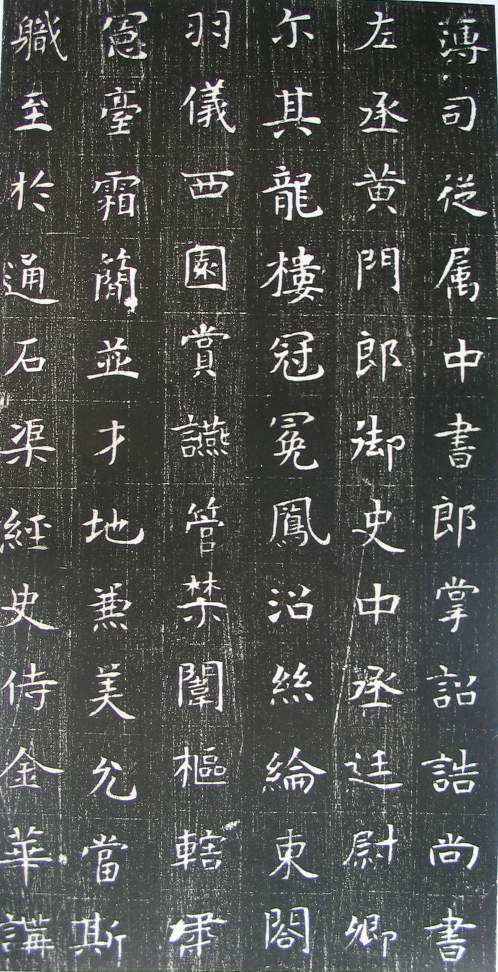 薄司從属中書郎掌詔誥尚書
左丞黄門郎御史中丞廷尉卿
尒其龍樓冠冕鳳沼絲綸東閤
羽儀西園賞讌管禁闈樞轄肅
憲臺霜簡並才地兼美允當斯
軄至於通石渠經史侍金華講